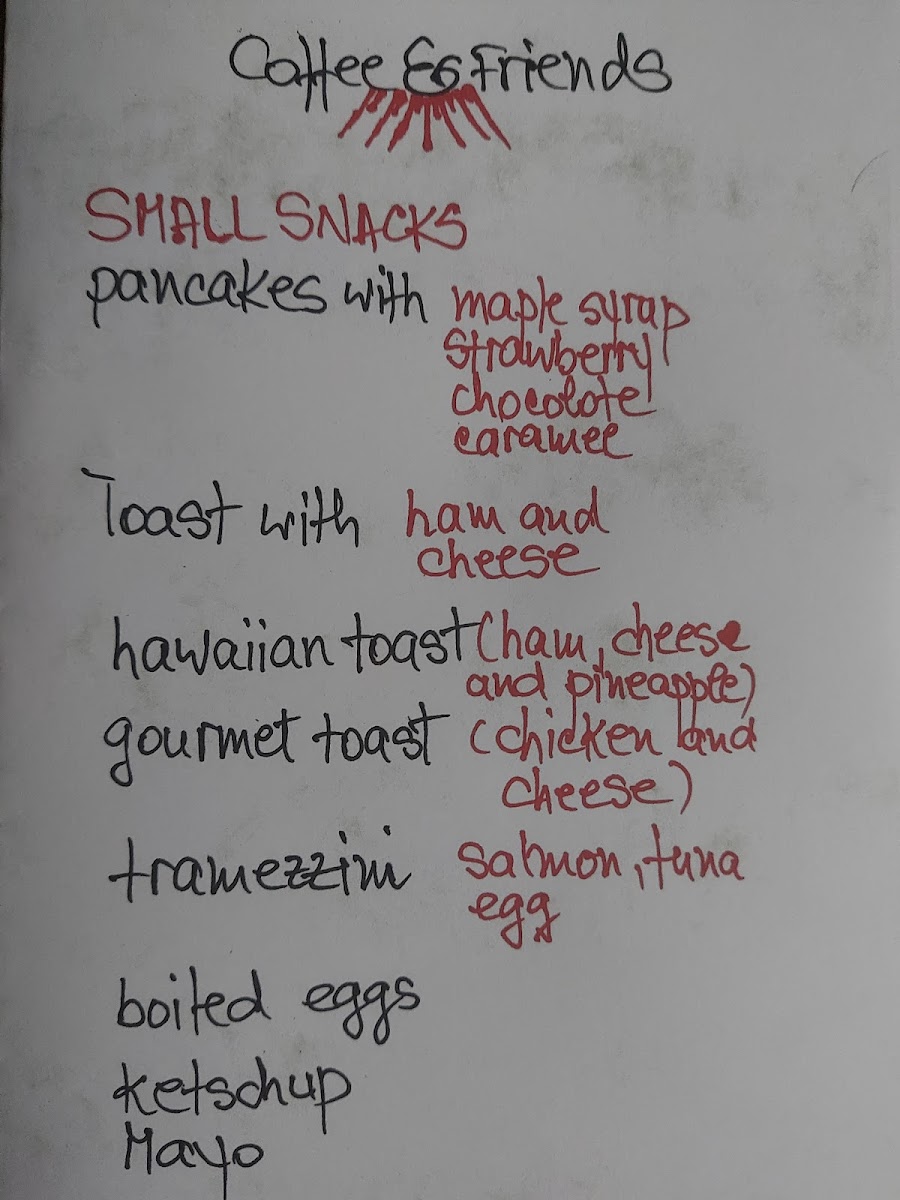 Coffee & Friends
SMALL SNACKS
pancakes with maple syrap
strawberry
chocolate
caramel
Toast with ham and
cheese
hawaiian toast (ham, cheese
and pineapple)
gourmet toast (chicken and
cheese)
tramezzini salmon, tuna
egg
boiled eggs
ketschup
Mayo